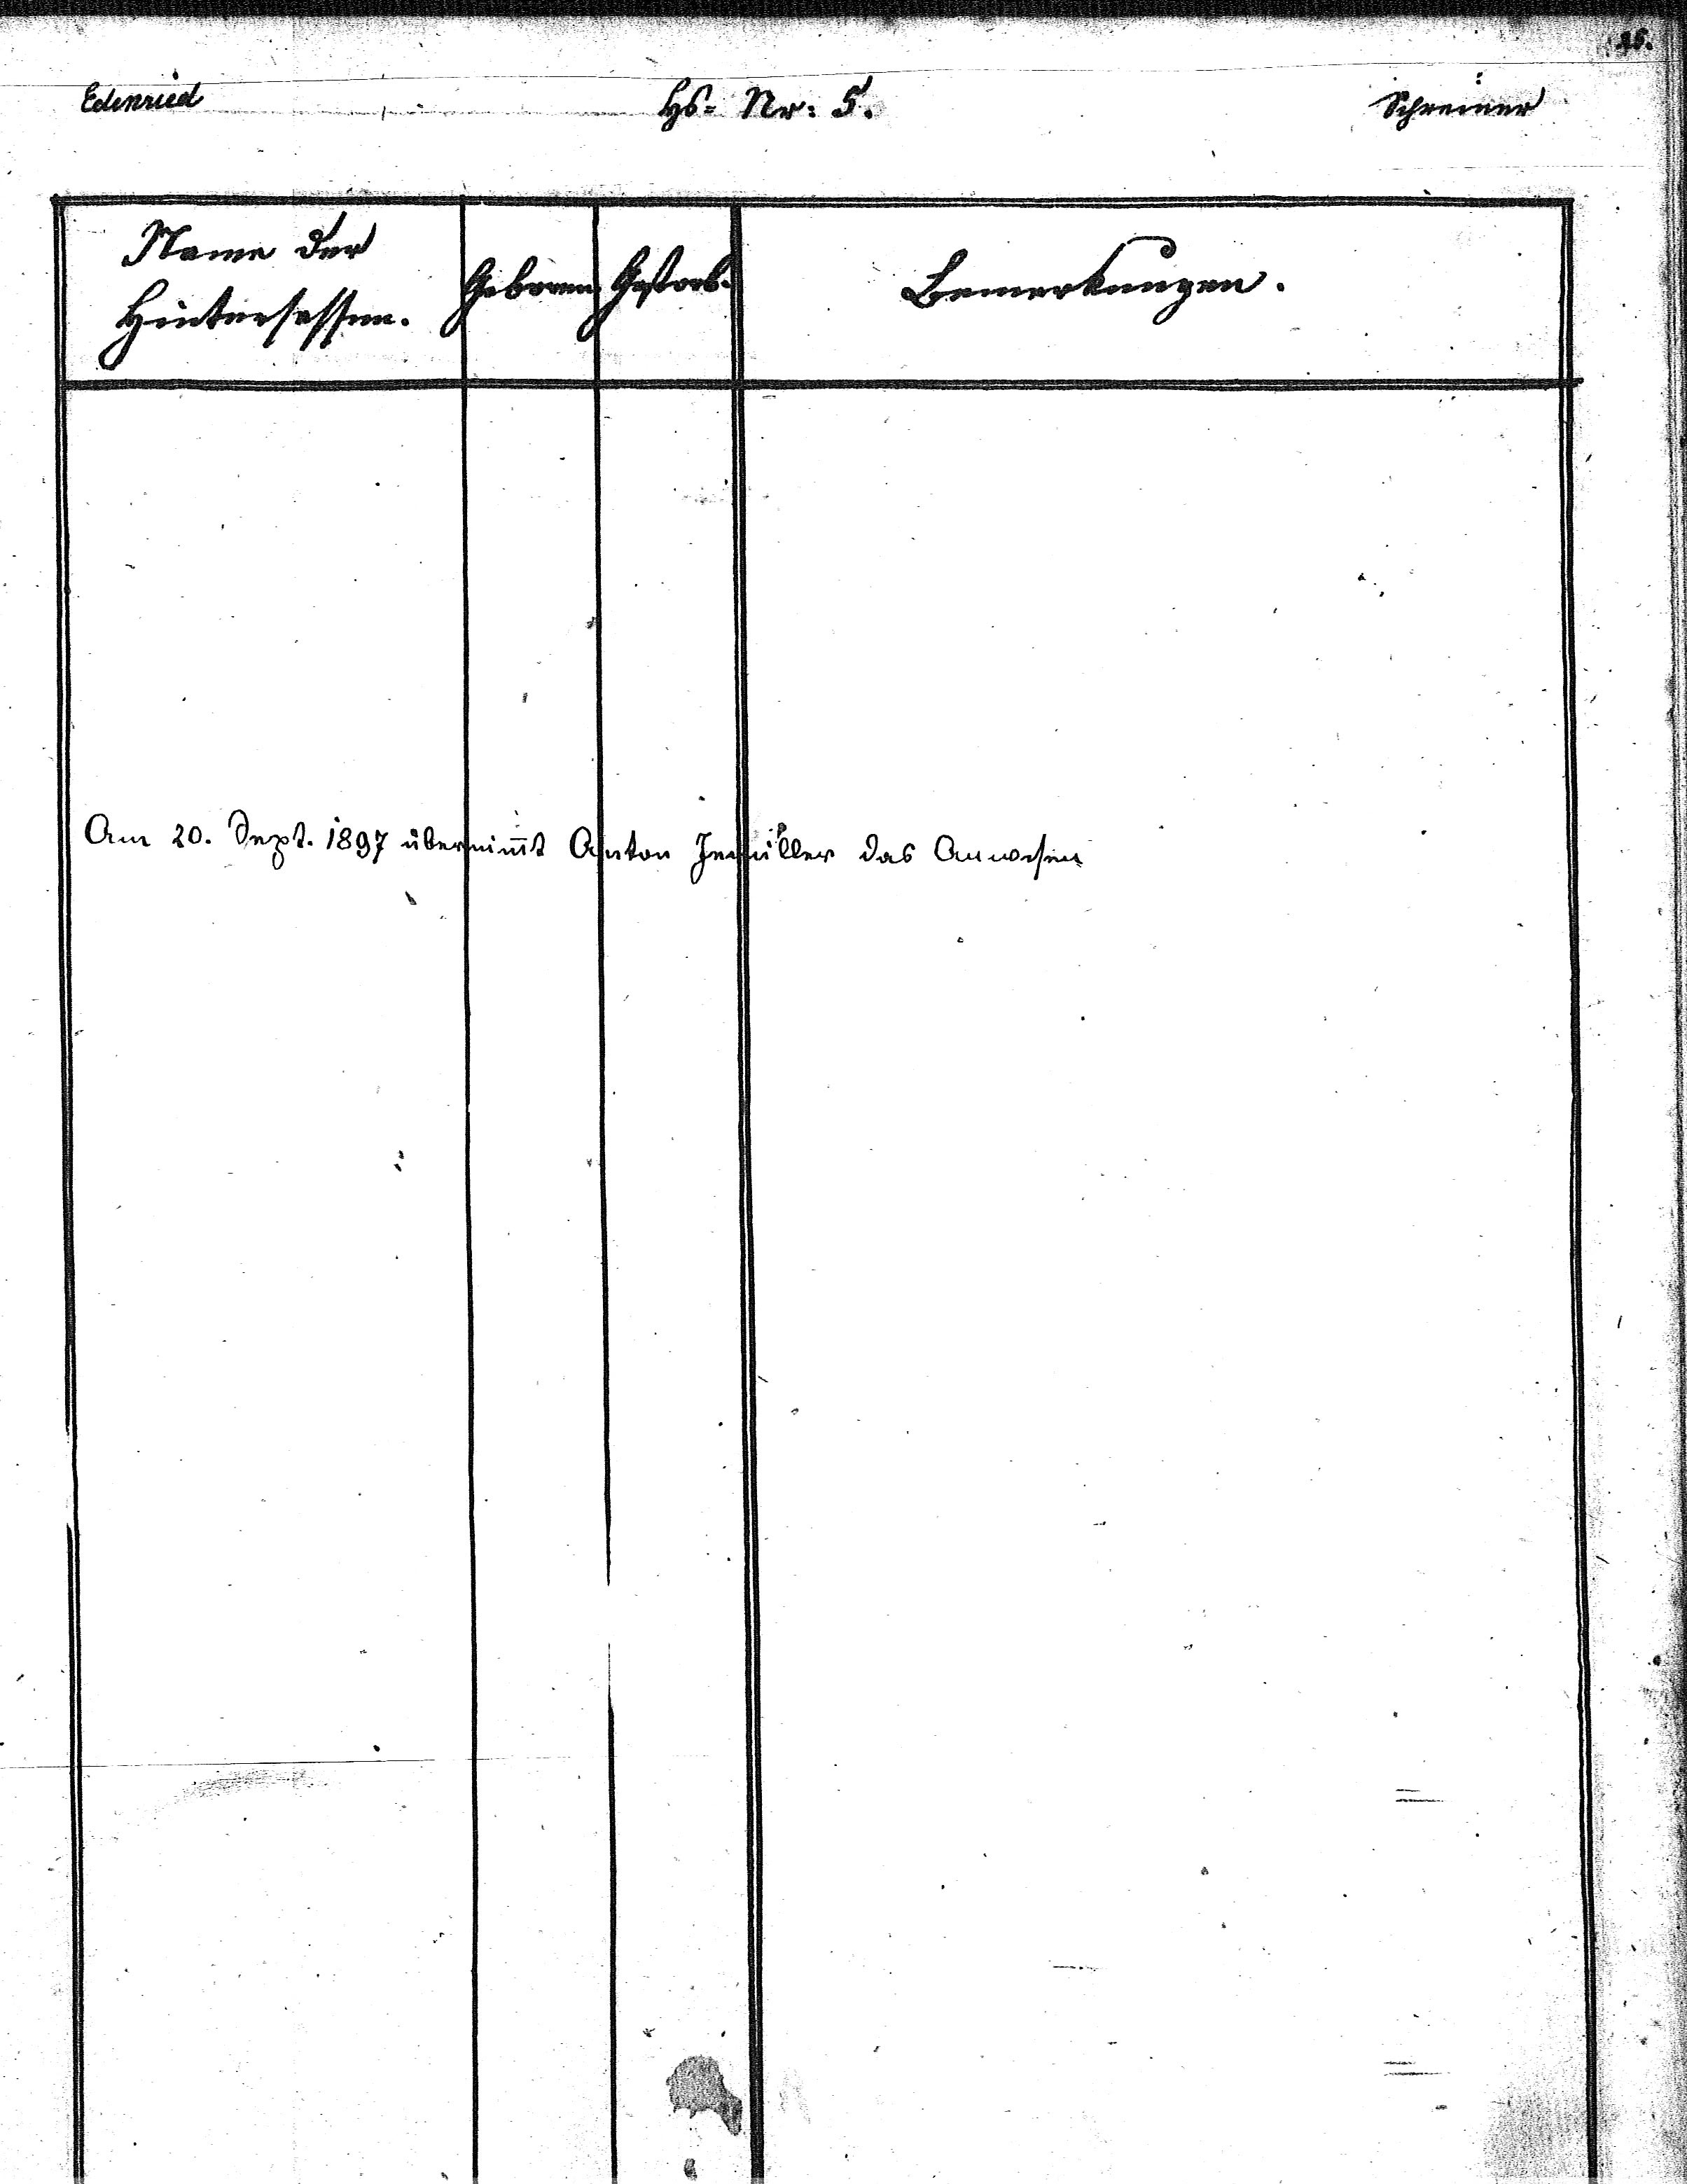 15.
Edenried Hs= Nr: 5. Schreiner
Name der
Hintersassen.
Geboren.
Gestorb.
Bemerkungen.
Am 20. Sept. 1897 übernim̅t Anton das Anwesen